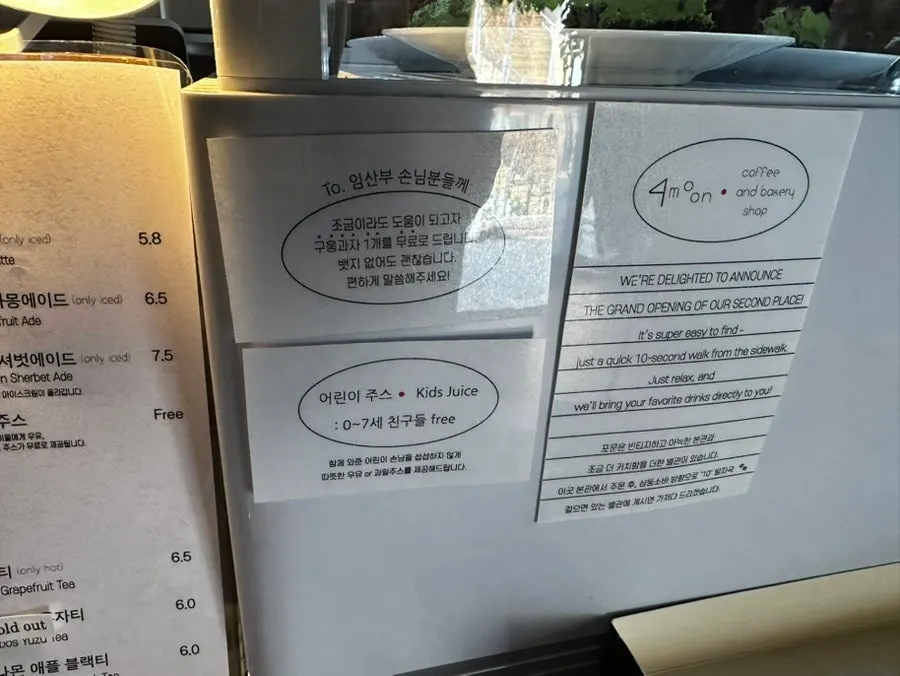 (only iced)
5.8
tte
몽에이드 (only iced)
6.5
fruit Ade
셔벗에이드 (only iced)
7.5
n Sherbet Ade
아이스크림이 올라갑니다.
주스
Free
우유,
주스가 무료로 제공됩니다.
티 (only hot)
6.5
Grapefruit Tea
old out
자티
6.0
Yuzu Tea
몬 애플 블랙티
6.0
To. 임산부 손님분들께
조금이라도 도움이 되고자
구움과자 1개를 무료로 드립니다.
뱃지 없어도 괜찮습니다.
편하게 말씀해주세요!
어린이 주스 • Kids Juice
: 0~7세 친구들 free
함께 와준 어린이 손님들 섭섭하지 않게
따뜻한 우유 or 과일주스를 제공해드립니다.
4moon • coffee
and bakery
shop
WE'RE DELIGHTED TO ANNOUNCE
THE GRAND OPENING OF OUR SECOND PLACE!
It's super easy to find-
just a quick 10-second walk from the sidewalk.
Just relax, and
we'll bring your favorite drinks directly to you!
포문은 빈티지하고 아늑한 본관과
조금 더 키치함을 더한 별관이 있습니다.
이곳 본관에서 주문 후, 삼동소바 방향으로 '10' 발자국
걸으면 있는 별관에 계시면 가져다 드리겠습니다.